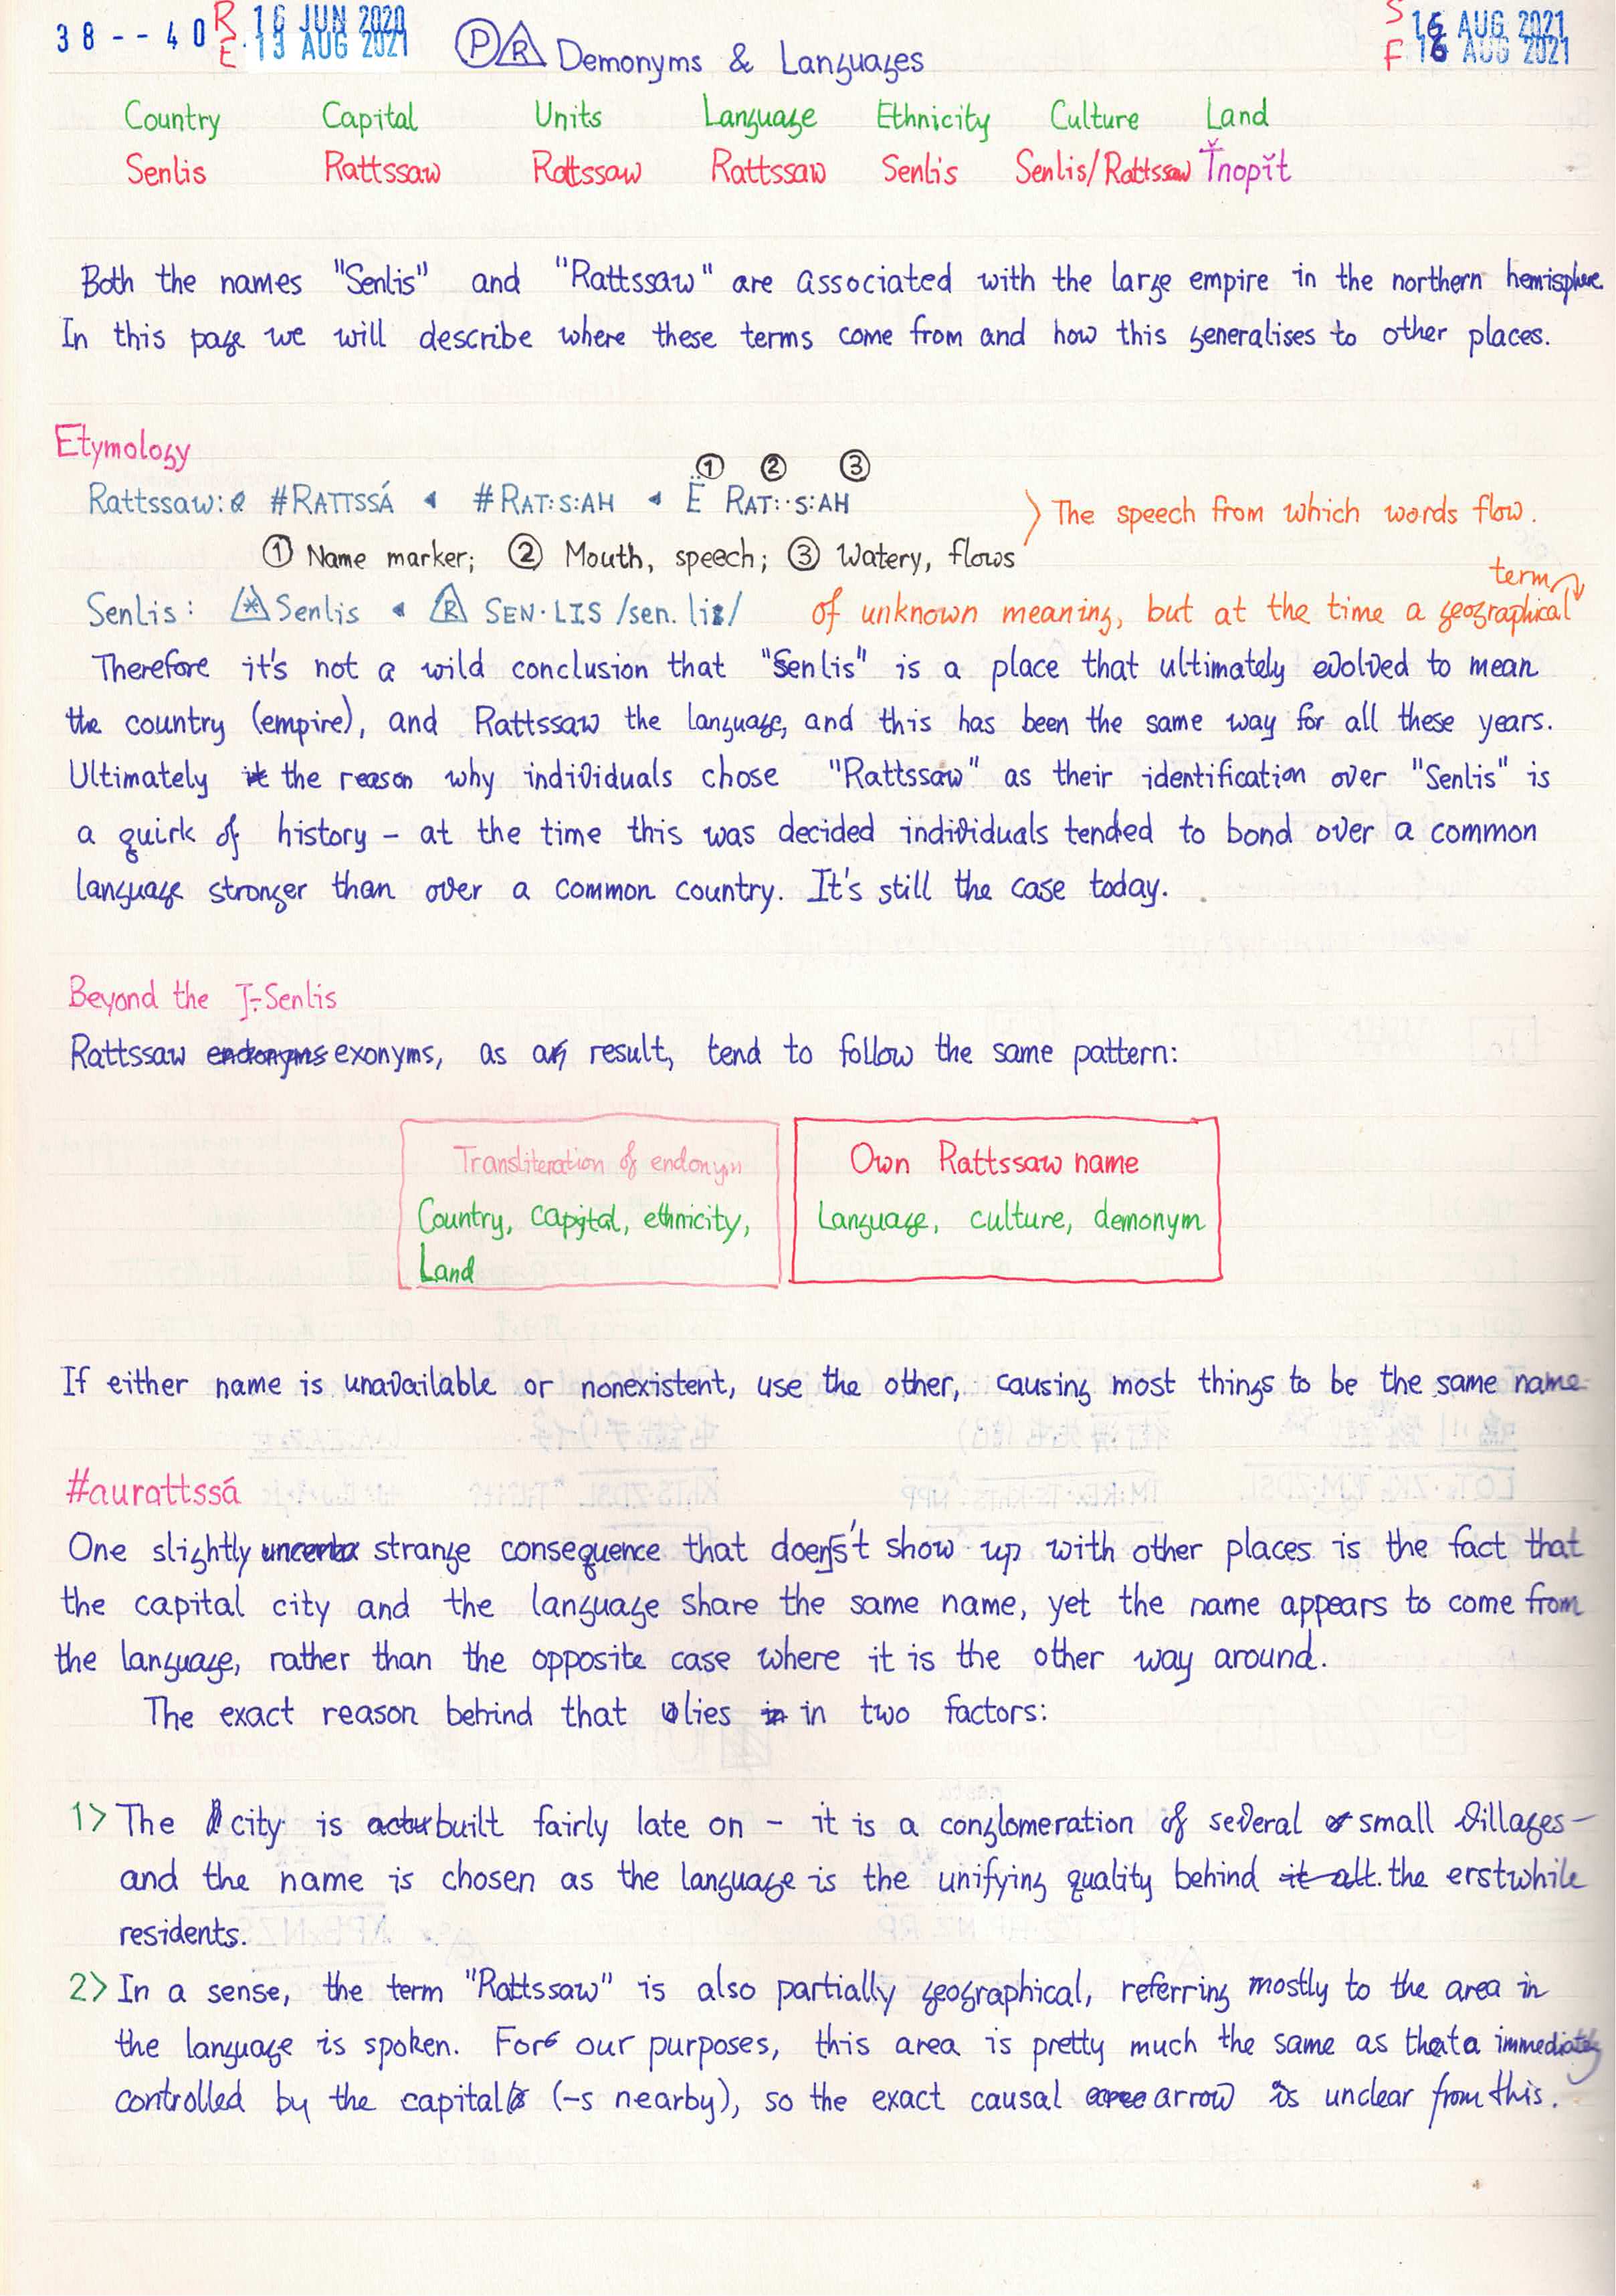 38--40 R 16 JUN 2020
E 13 AUG 2021
P R Demonyms & Languages
S 16 AUG 2021
F 16 AUG 2021
Country Capital Units Language Ethnicity Culture Land
Senlis Rattssaw Rattssaw Rattssaw Senlis Senlis/Rattssaw Ťnopǐt
Both the names "Senlis" and "Rattssaw" are associated with the large empire in the northern hemisphere.
In this page we will describe where these terms come from and how this generalises to other places.
Etymology
① ② ③
Rattssaw: #RATTSSÁ ◂ #RAT:S:AH ◂ Ë RAT:·S:AH > The speech from which words flow.
① Name marker; ② Mouth, speech; ③ Watery, flows
term
Senlis: Senlis ◂ R SEN·LIS /sen.lis/ of unknown meaning, but at the time a geographical
Therefore it's not a wild conclusion that "Senlis" is a place that ultimately evolved to mean
the country (empire), and Rattssaw the language, and this has been the same way for all these years.
Ultimately the reason why individuals chose "Rattssaw" as their identification over "Senlis" is
a quirk of history – at the time this was decided individuals tended to bond over a common
language stronger than over a common country. It's still the case today.
Beyond the J-Senlis
Rattssaw endonyms exonyms, as a result, tend to follow the same pattern:
Transliteration of endonym
Country, capital, ethnicity,
Land
Own Rattssaw name
Language, culture, demonym
If either name is unavailable or nonexistent, use the other, causing most things to be the same name
#aurattssá
One slightly strange consequence that doesn't show up with other places is the fact that
the capital city and the language share the same name, yet the name appears to come from
the language, rather than the opposite case where it is the other way around.
The exact reason behind that lies in in two factors:
1> The city is built fairly late on – it is a conglomeration of several small villages –
and the name is chosen as the language is the unifying quality behind it all. the erstwhile
residents.
2> In a sense, the term "Rattssaw" is also partially geographical, referring mostly to the area in
the language is spoken. For our purposes, this area is pretty much the same as thata immediately
controlled by the capital (-s nearby), so the exact causal arrow is unclear from this.